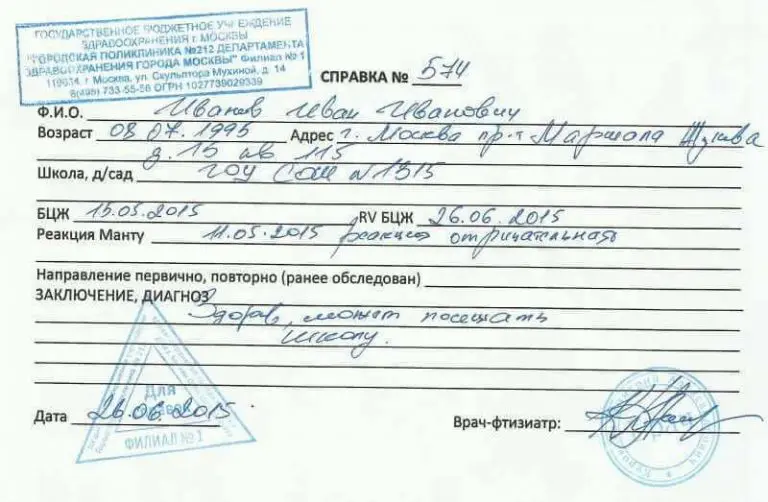 ГОСУДАРСТВЕННОЕ БЮДЖЕТНОЕ УЧРЕЖДЕНИЕ
ЗДРАВООХРАНЕНИЯ г. МОСКВЫ
"ГОРОДСКАЯ ПОЛИКЛИНИКА №212 ДЕПАРТАМЕНТА
ЗДРАВООХРАНЕНИЯ ГОРОДА МОСКВЫ" Филиал № 1
г. Москва, ул. Скульптора Мухиной, д. 14
8(495) 733-55-56 ОГРН 1027739029339
СПРАВКА № 574
Ф.И.О. Иванов Иван Иванович
Возраст 08.07.1995 Адрес г. Москва пр-т Маршала Жукова
д. 15 кв 115
Школа, д/сад ГОУ СОШ N 1315
БЦЖ 15.05.2015 RV БЦЖ 26.06.2015
Реакция Манту 11.05.2015 реакция отрицательная
Направление первично, повторно (ранее обследован)
ЗАКЛЮЧЕНИЕ, ДИАГНОЗ
Здоров, может посещать
школу.
Для
Дата 26.06.2015
ФИЛИАЛ №1
Врач-фтизиатр: